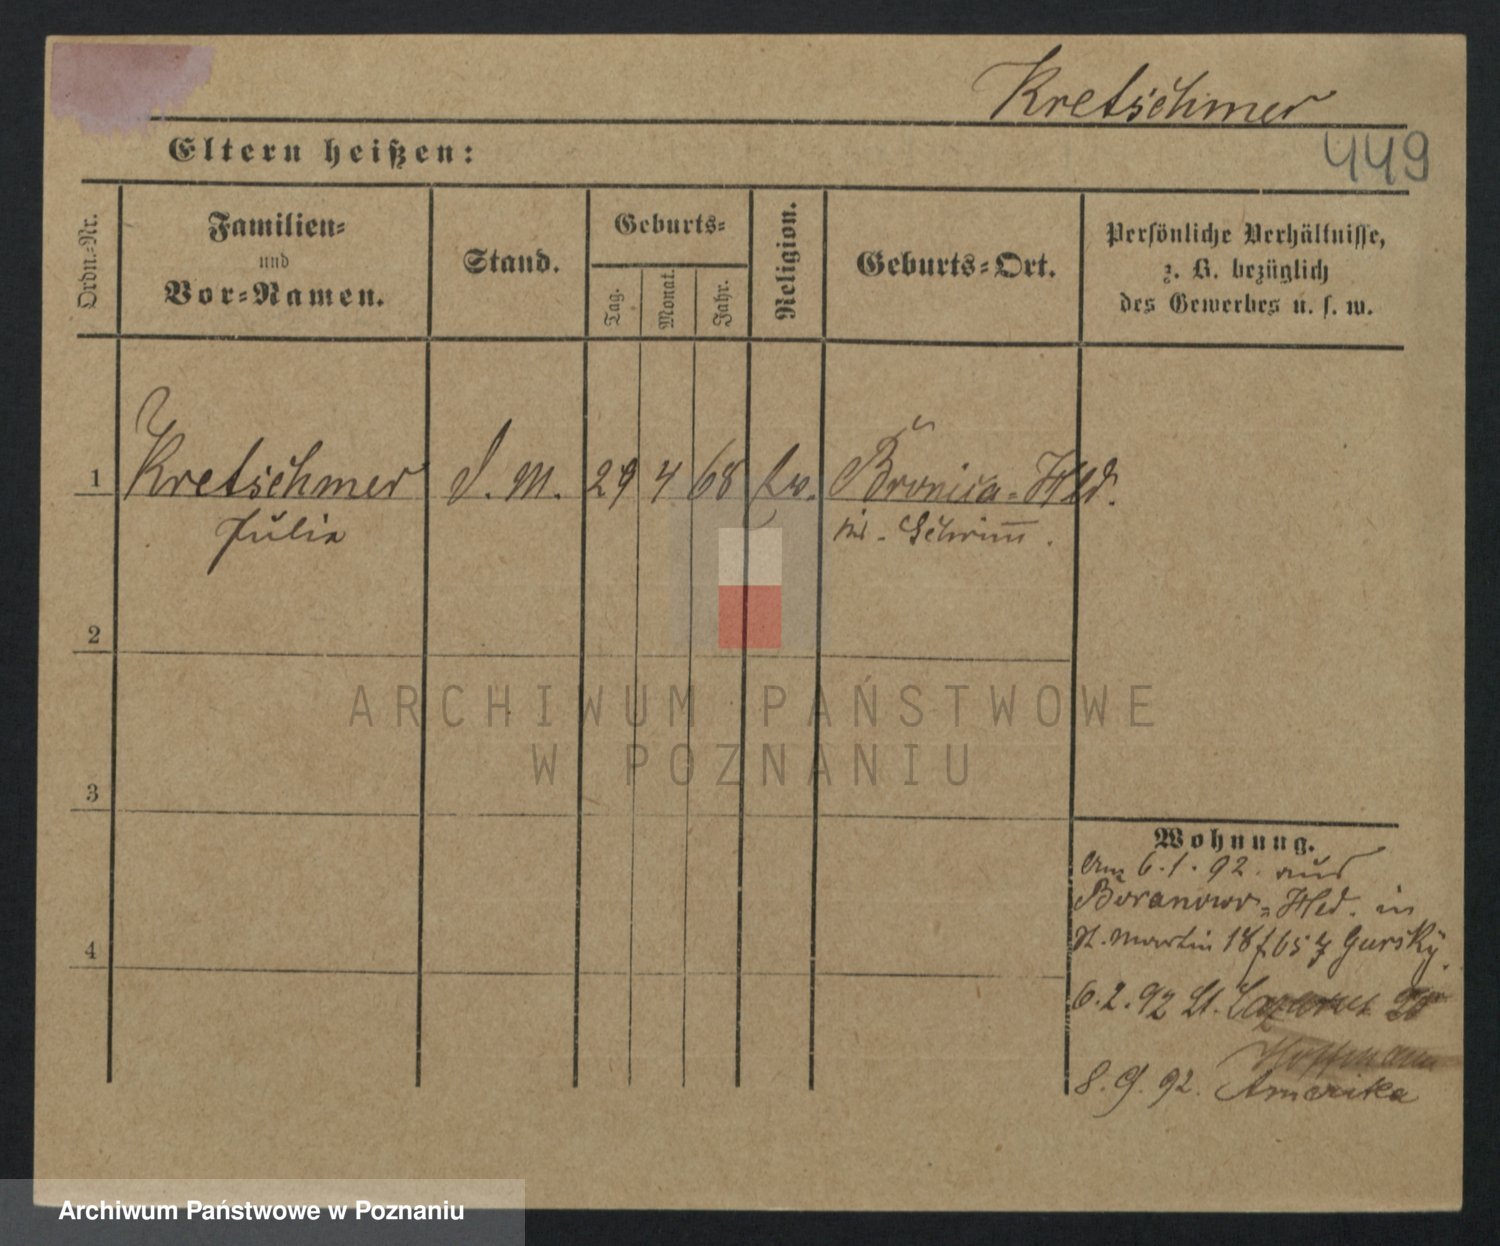 Kretschmer
449
Eltern heißen:
Ordn.-Nr.
Familien-
und
Vor-Namen.
Stand.
Geburts-
Tag.
Monat.
Jahr.
Religion.
Geburts-Ort.
Persönliche Verhältnisse,
z. B. bezüglich
des Gewerbes u. s. w.
1 Kretschmer D. M. 29 4 68 Ev. Bronica-Hld.
Julia Krs. Schrimm.
2
ARCHIWUM PAŃSTWOWE
W POZNANIU
3
Wohnung.
Am 6.1.92. aus
Boranowo-Hld. in
St. Martin 18 f 65 z Gursky.
4
6.2.92 St. Lazarus
Hoffmann
8.9.92. Amerika
Archiwum Państwowe w Poznaniu